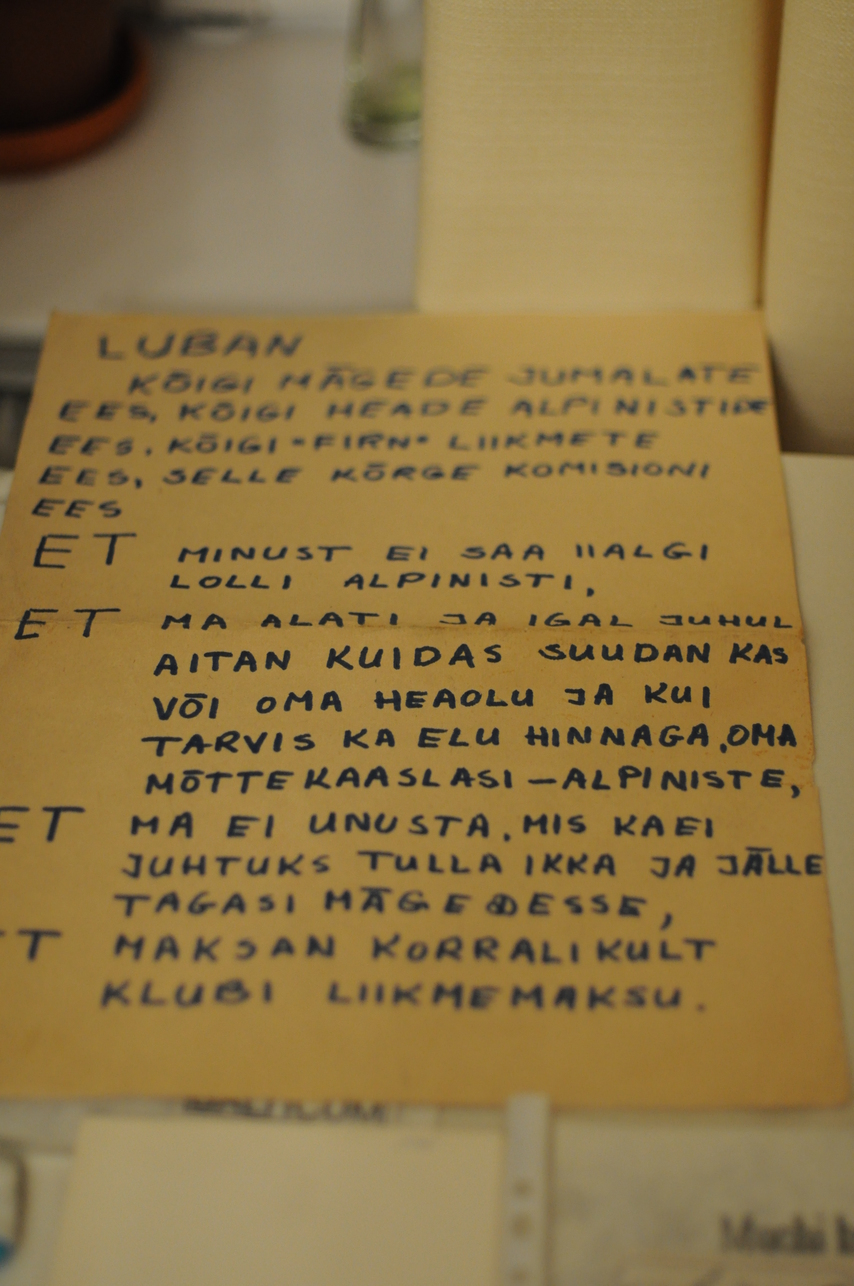 LUBAN
KÕIGI MÄGEDE JUMALATE
EES, KÕIGI HEADE ALPINISTIDE
EES, KÕIGI "FIRN" LIIKMETE
EES, SELLE KÕRGE KOMISIONI
EES
ET MINUST EI SAA IIALGI
LOLLI ALPINISTI,
ET MA ALATI JA IGAL JUHUL
AITAN KUIDAS SUUDAN KAS
VÕI OMA HEAOLU JA KUI
TARVIS KA ELU HINNAGA, OMA
MÕTTEKAASLASI – ALPINISTE,
ET MA EI UNUSTA, MIS KA EI
JUHTUKS TULLA IKKA JA JÄLLE
TAGASI MÄGEDESSE,
ET MAKSAN KORRALIKULT
KLUBI LIIKMEMAKSU.